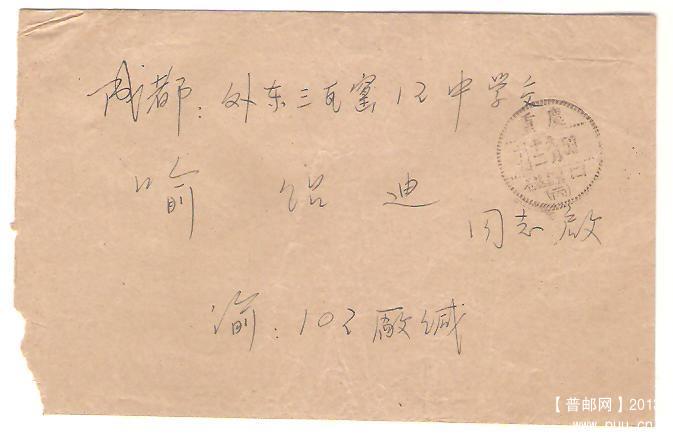 成都：外东三瓦窑12中学交
喻绍迪
同志啟
渝：102廠缄
重慶
【普邮网】2013
www.puu.cn